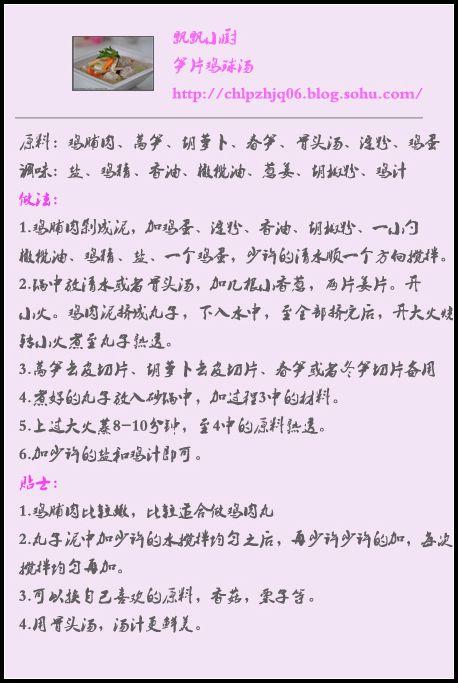 飘飘小厨
笋片鸡球汤
http://chlpzhjq06.blog.sohu.com/
原料：鸡脯肉、莴笋、胡萝卜、春笋、骨头汤、淀粉、鸡蛋
调味：盐、鸡精、香油、橄榄油、葱姜、胡椒粉、鸡汁
做法：
1.鸡脯肉剁成泥，加鸡蛋、淀粉、香油、胡椒粉、一小勺
橄榄油、鸡精、盐、一个鸡蛋，少许的清水顺一个方向搅拌。
2.锅中放清水或者骨头汤，加几根小香葱，两片姜片。开
小火。鸡肉泥挤成丸子，下入水中，至全部挤完后，开大火烧
转小火煮至丸子熟透。
3.莴笋去皮切片、胡萝卜去皮切片、春笋或者冬笋切片备用
4.煮好的丸子放入砂锅中，加过程3中的材料。
5.上过大火蒸8-10分钟，至4中的原料熟透。
6.加少许的盐和鸡汁即可。
贴士：
1.鸡脯肉比较嫩，比较适合做鸡肉丸
2.丸子泥中加少许的水搅拌均匀之后，再少许少许的加，每次
搅拌均匀再加。
3.可以换自己喜欢的原料，香菇，栗子等。
4.用骨头汤，汤汁更鲜美。